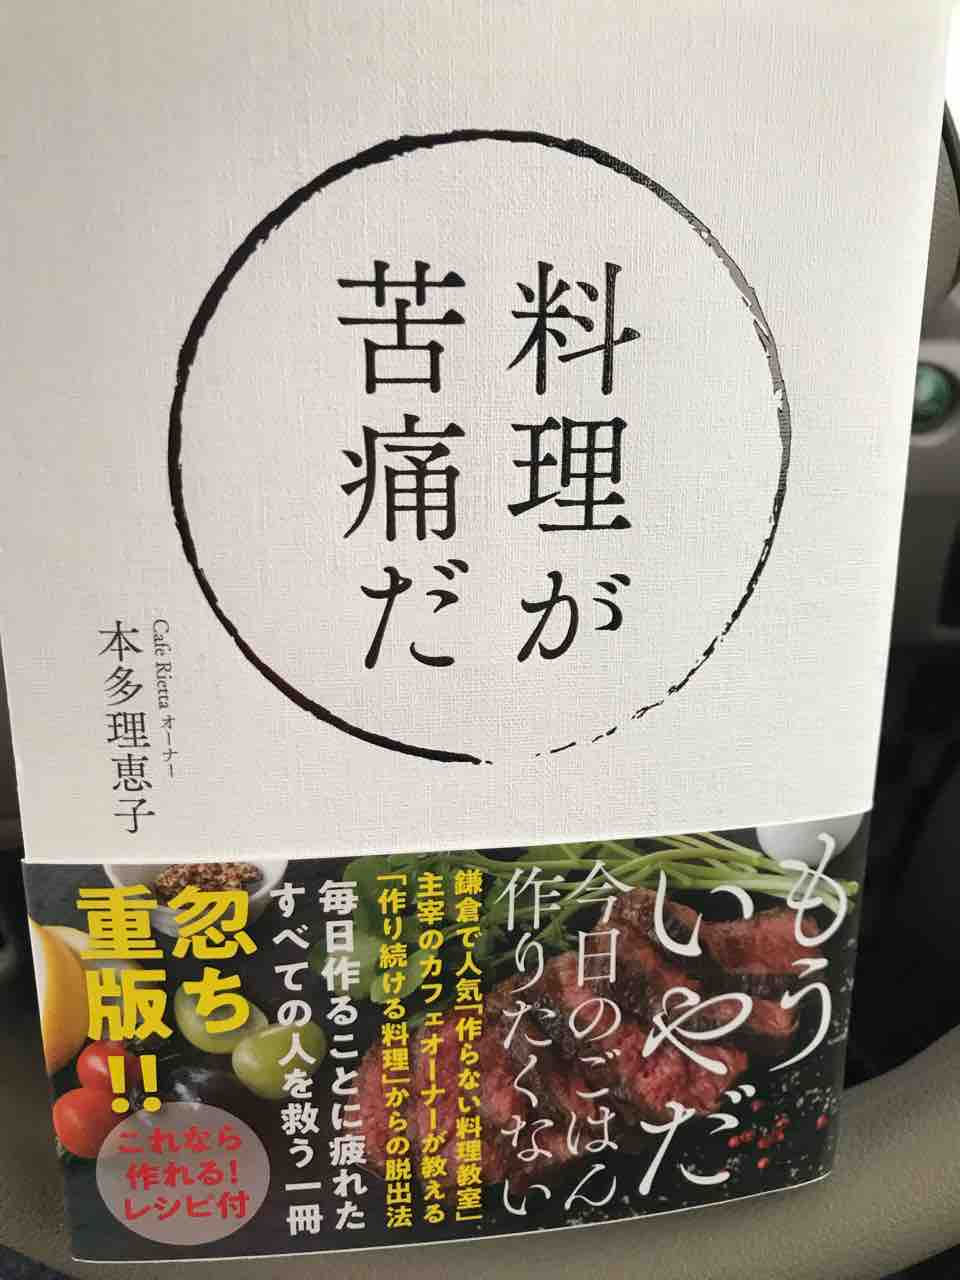 料理が
苦痛だ
Cafe Rietta オーナー
本多理恵子
もう
いやだ
今日のごはん
作りたくない
鎌倉で人気「作らない料理教室」
主宰のカフェオーナーが教える
「作り続ける料理」からの脱出法
毎日作ることに疲れた
すべての人を救う一冊
忽ち
重版!!
これなら
作れる!
レシピ付